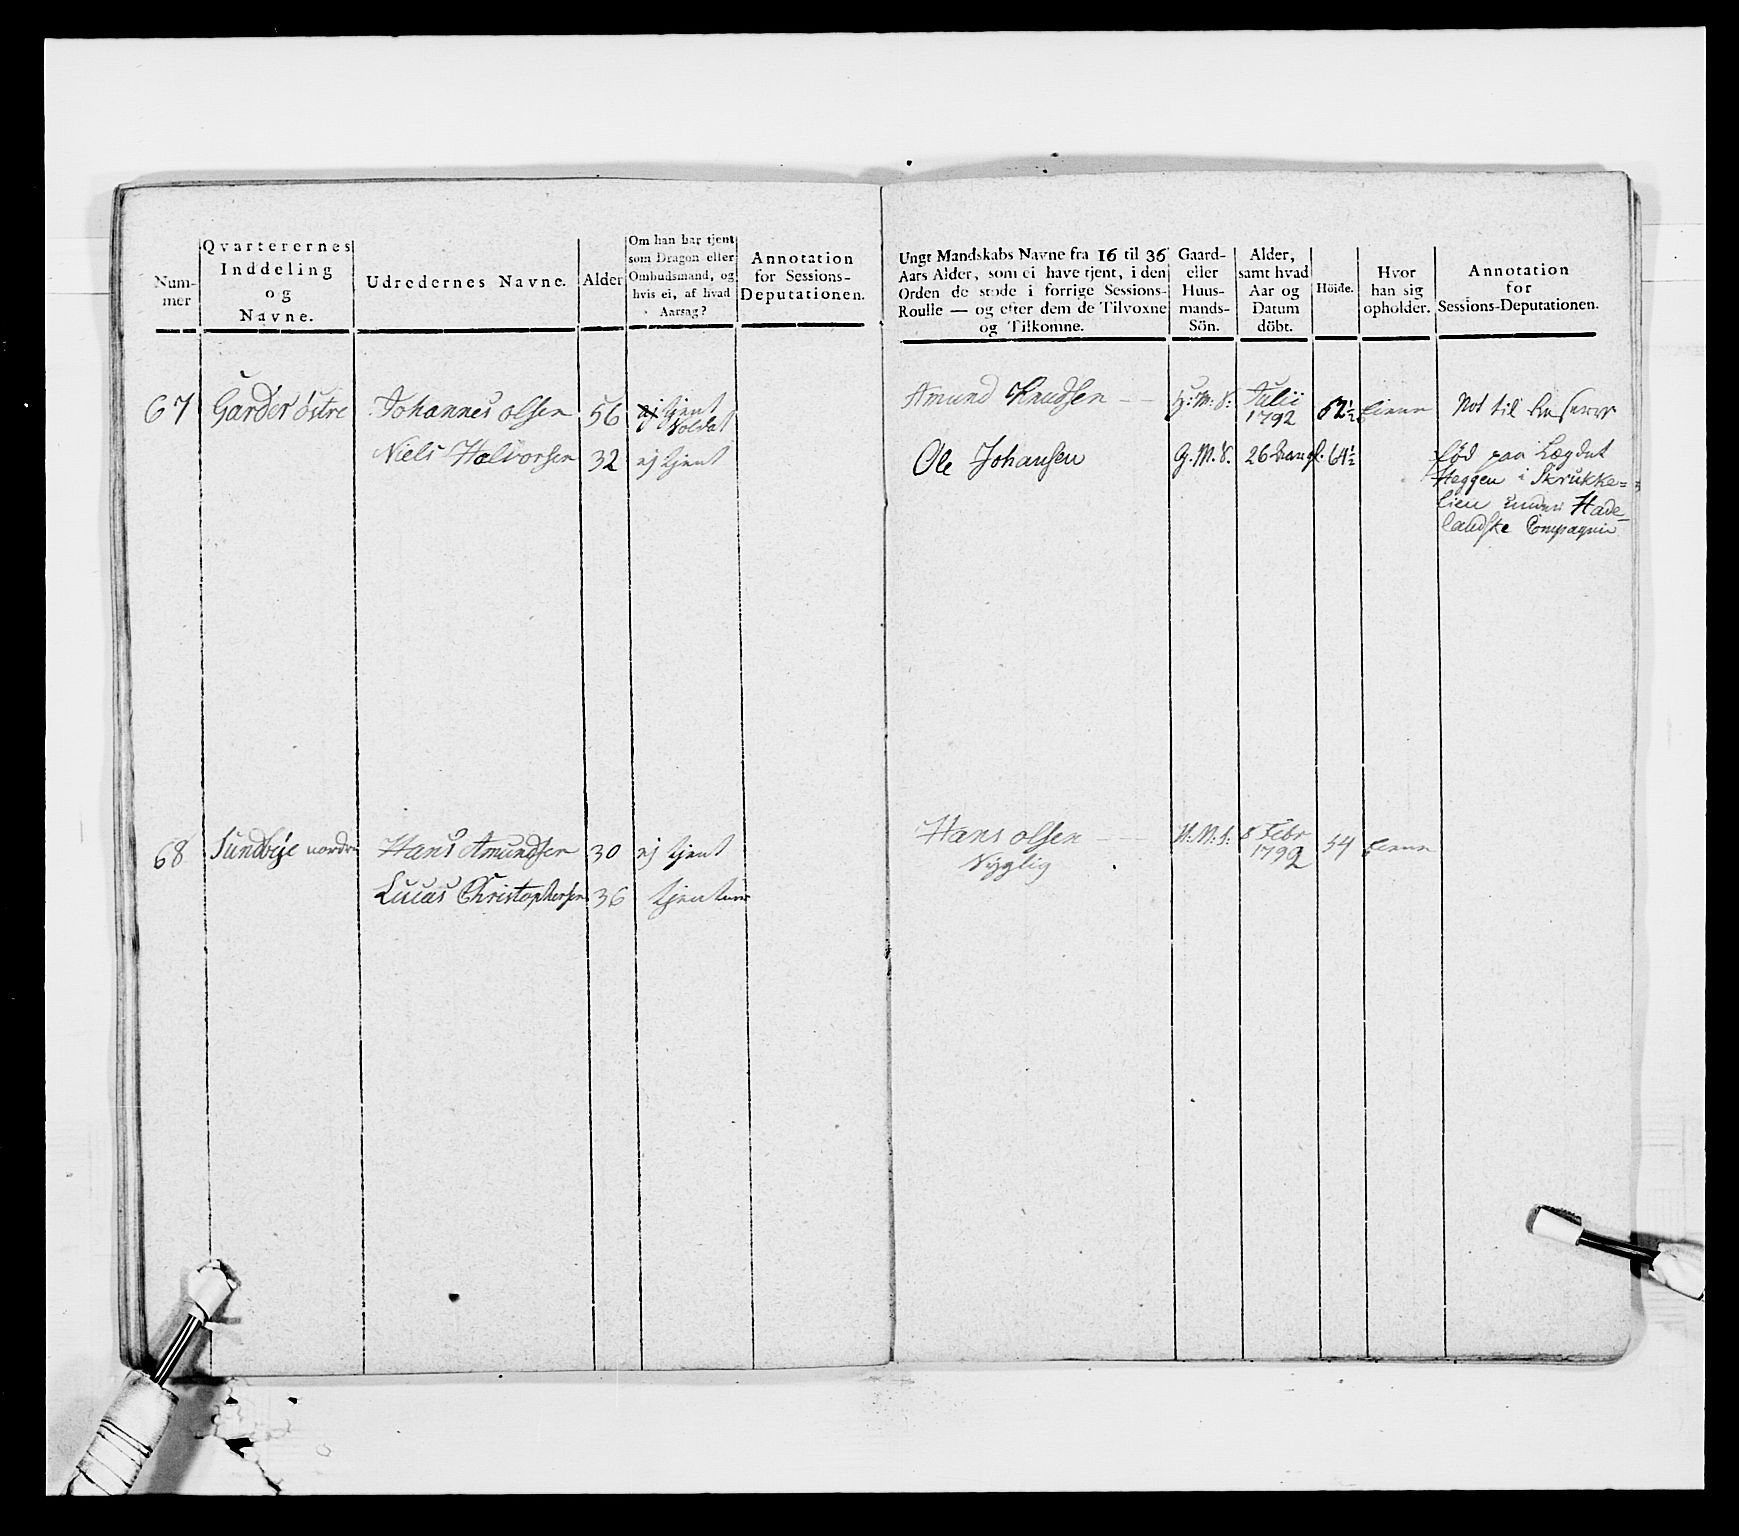 Num-
mer
Qvarterernes
Inddeling
og
Navne.
Udredernes Navne.
Alder
Om han har tjent
som Dragon eller
Ombudsmand, og
hvis ei, af hvad
Aarsag?
Annotation
for Sessions-
Deputationen.
67
Garder östre
Johannes Olsen
56
ej tjent
Soldat
Niels Halvorsen
32
ej tjent
68
Sundbye nordre
Hans Amundsen
30
ej tjent
Lucas Christophersen
36
tjener
Ungt Mandskabs Navne fra 16 til 36
Aars Alder, som ei have tjent, i den
Orden de stode i forrige Sessions-
Roulle — og efter dem de Tilvoxne
og Tilkomne.
Gaard-
eller
Huus-
mands-
Sön.
Alder,
samt hvad
Aar og
Datum
döbt.
Höide.
Hvor
han sig
opholder.
Annotation
for
Sessions-Deputationen.
Amund Knudsen
H: M: S:
Julii
1792
62½
hiemme
Not til Reserve
Ole Johansen
G. M. S.
26
64½
född paa Lægdet
Heggen i Skrukke-
lien under Hade-
landske Compagnie
Hans Olsen
Nyglig
H: M: S:
8 Febr
1792
54
hiemme